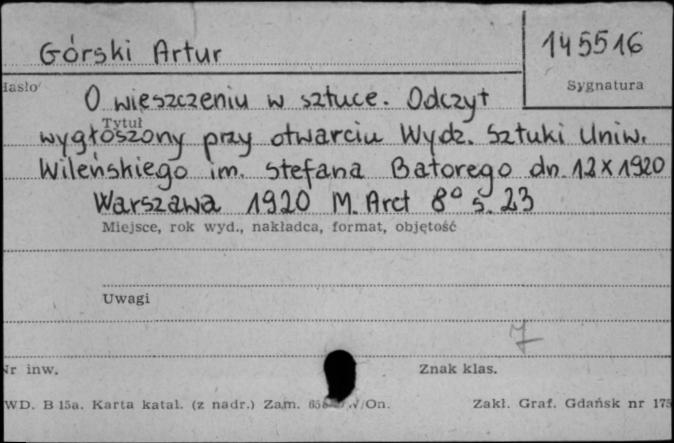 Górski Artur
145516
Hasło
Sygnatura
O wieszczeniu w sztuce. Odczyt
Tytuł
wygłoszony przy otwarciu Wydz. Sztuki Uniw.
Wileńskiego im. Stefana Batorego dn. 12 X 1920
Warszawa 1920 M. Arct 8° s. 23
Miejsce, rok wyd., nakładca, format, objętość
Uwagi
7
Nr inw.
Znak klas.
WD. B 15a. Karta katal. (z nadr.) Zam. /On.
Zakł. Graf. Gdańsk nr 175